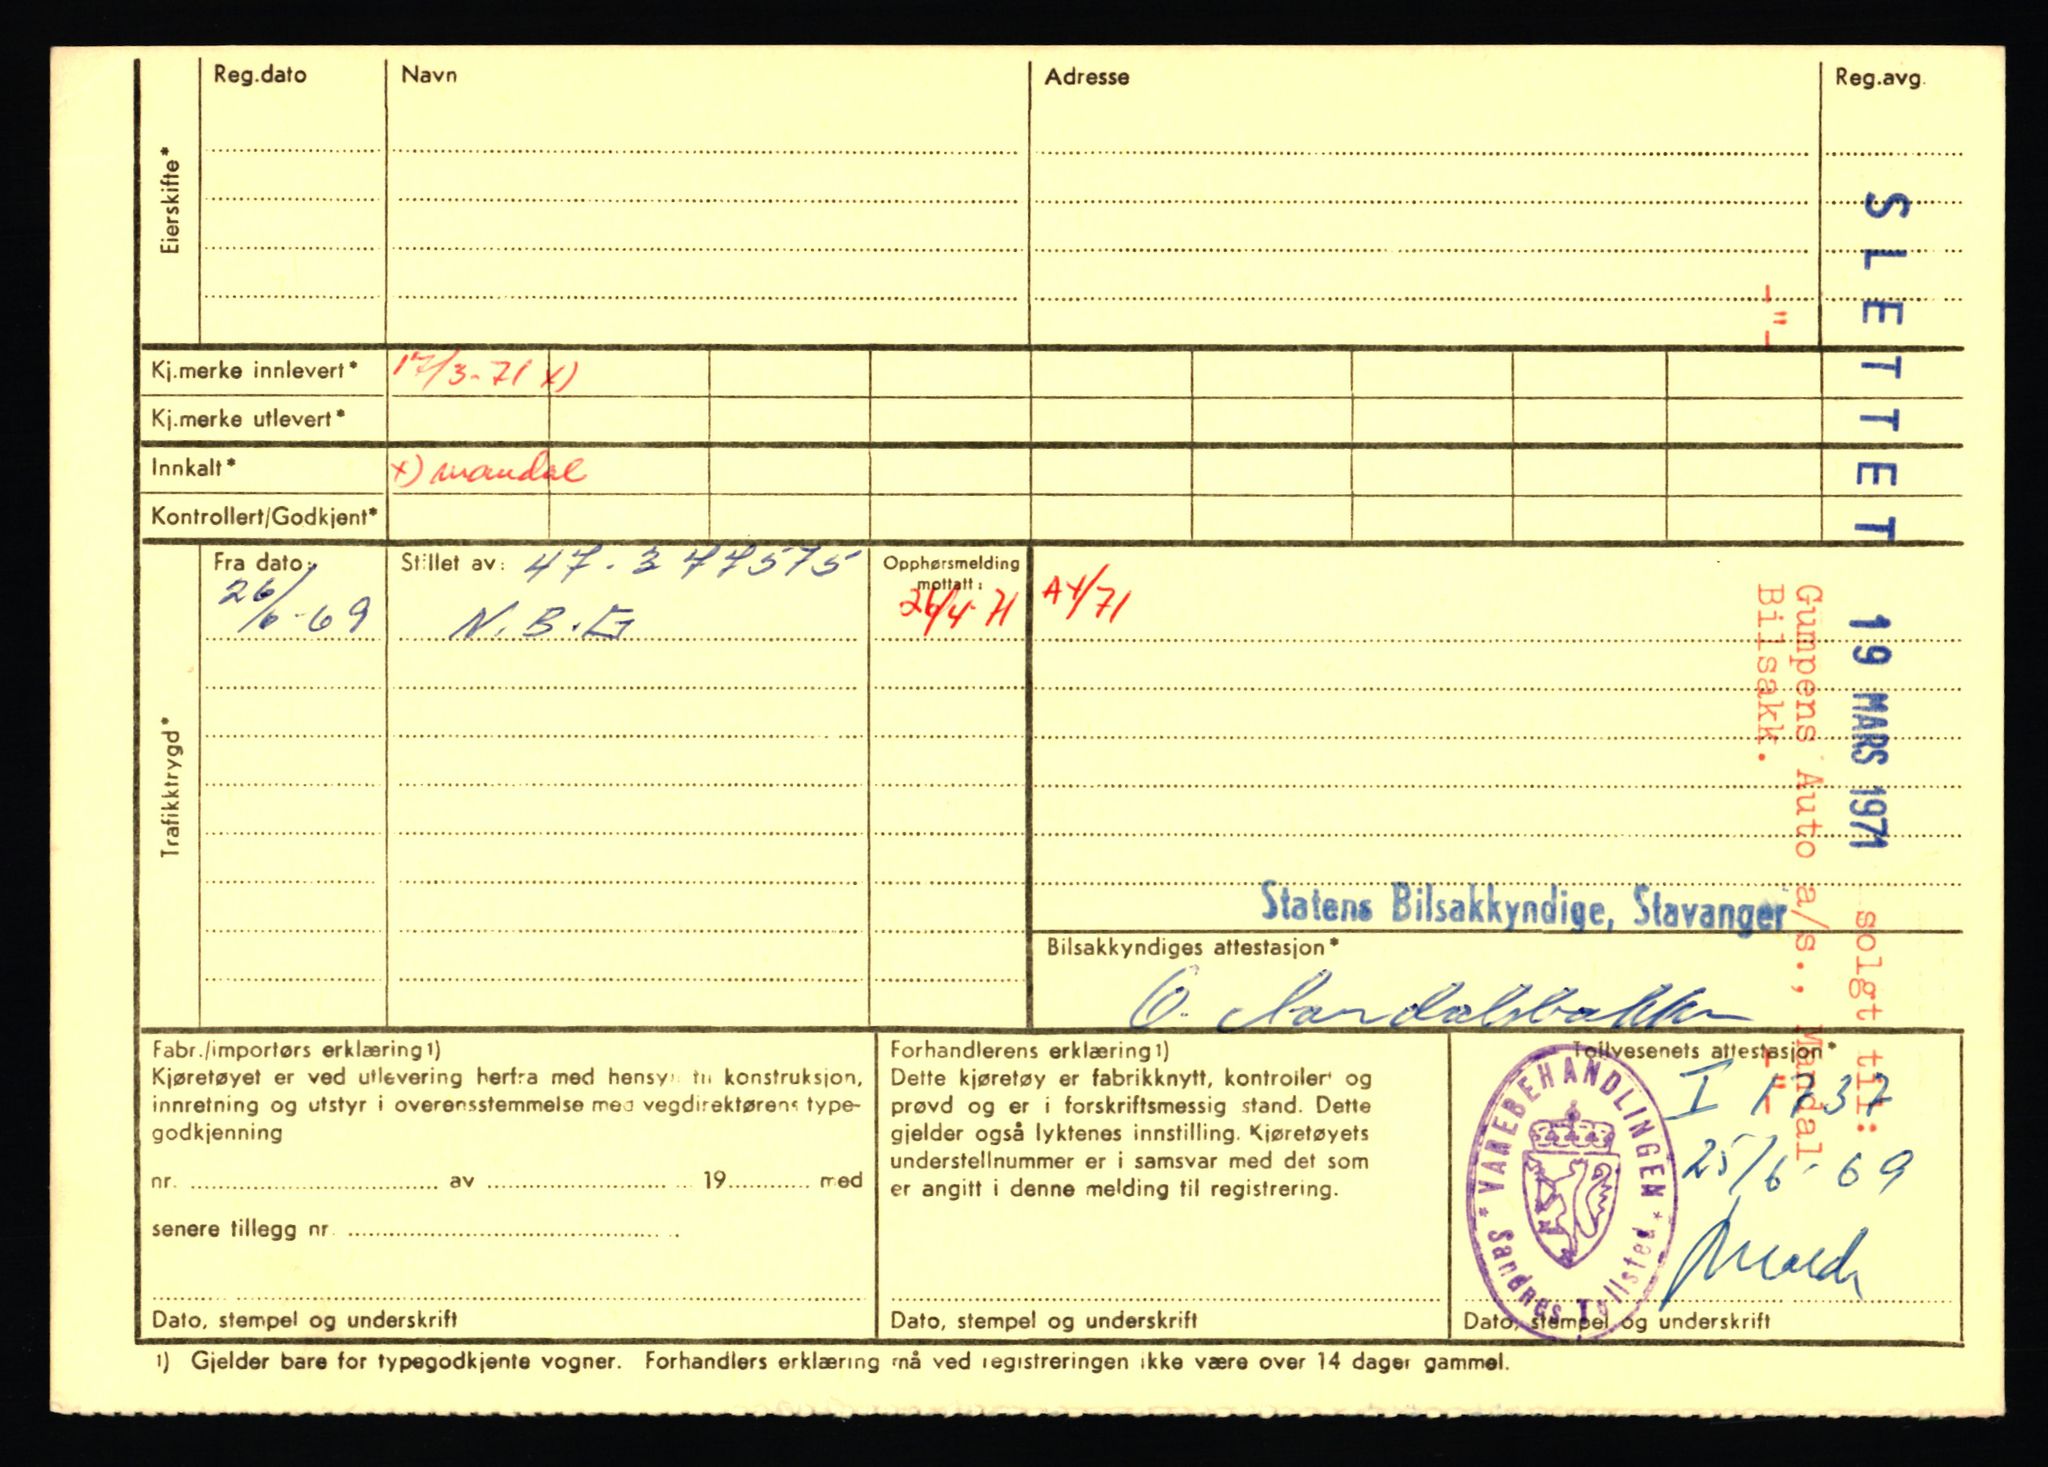 Reg.dato Navn Adresse Reg.avg.
Eierskifte*
Kj.merke innlevert* 17/3-71 x)
Kj.merke utlevert*
Innkalt* x) mandal
Kontrollert/Godkjent*
Trafikktrygd*
Fra dato: Stillet av: 47.377575 Opphørsmelding mottatt:
26/6-69 N.B.G 26/4-71 A4/71
SLETTET 19 MARS 1971 solgt til:
Gumpens Auto a/s., Mandal
-"- Bilsakk. -"-
Statens Bilsakkyndige, Stavanger
Bilsakkyndiges attestasjon*
Fabr./importørs erklæring1)
Kjøretøyet er ved utlevering herfra med hensyn til konstruksjon,
innretning og utstyr i overensstemmelse med vegdirektørens type-
godkjenning
nr. av 19 med
senere tillegg nr.
Dato, stempel og underskrift
Forhandlerens erklæring1)
Dette kjøretøy er fabrikknytt, kontrollert og
prøvd og er i forskriftsmessig stand. Dette
gjelder også lyktenes innstilling. Kjøretøyets
understellnummer er i samsvar med det som
er angitt i denne melding til registrering.
Dato, stempel og underskrift
Tollvesenets attestasjon*
I 1737
25/6-69
* VAREBEHANDLINGEN * Sandnes Tollsted
Dato, stempel og underskrift
1) Gjelder bare for typegodkjente vogner. Forhandlers erklæring må ved registreringen ikke være over 14 dager gammel.